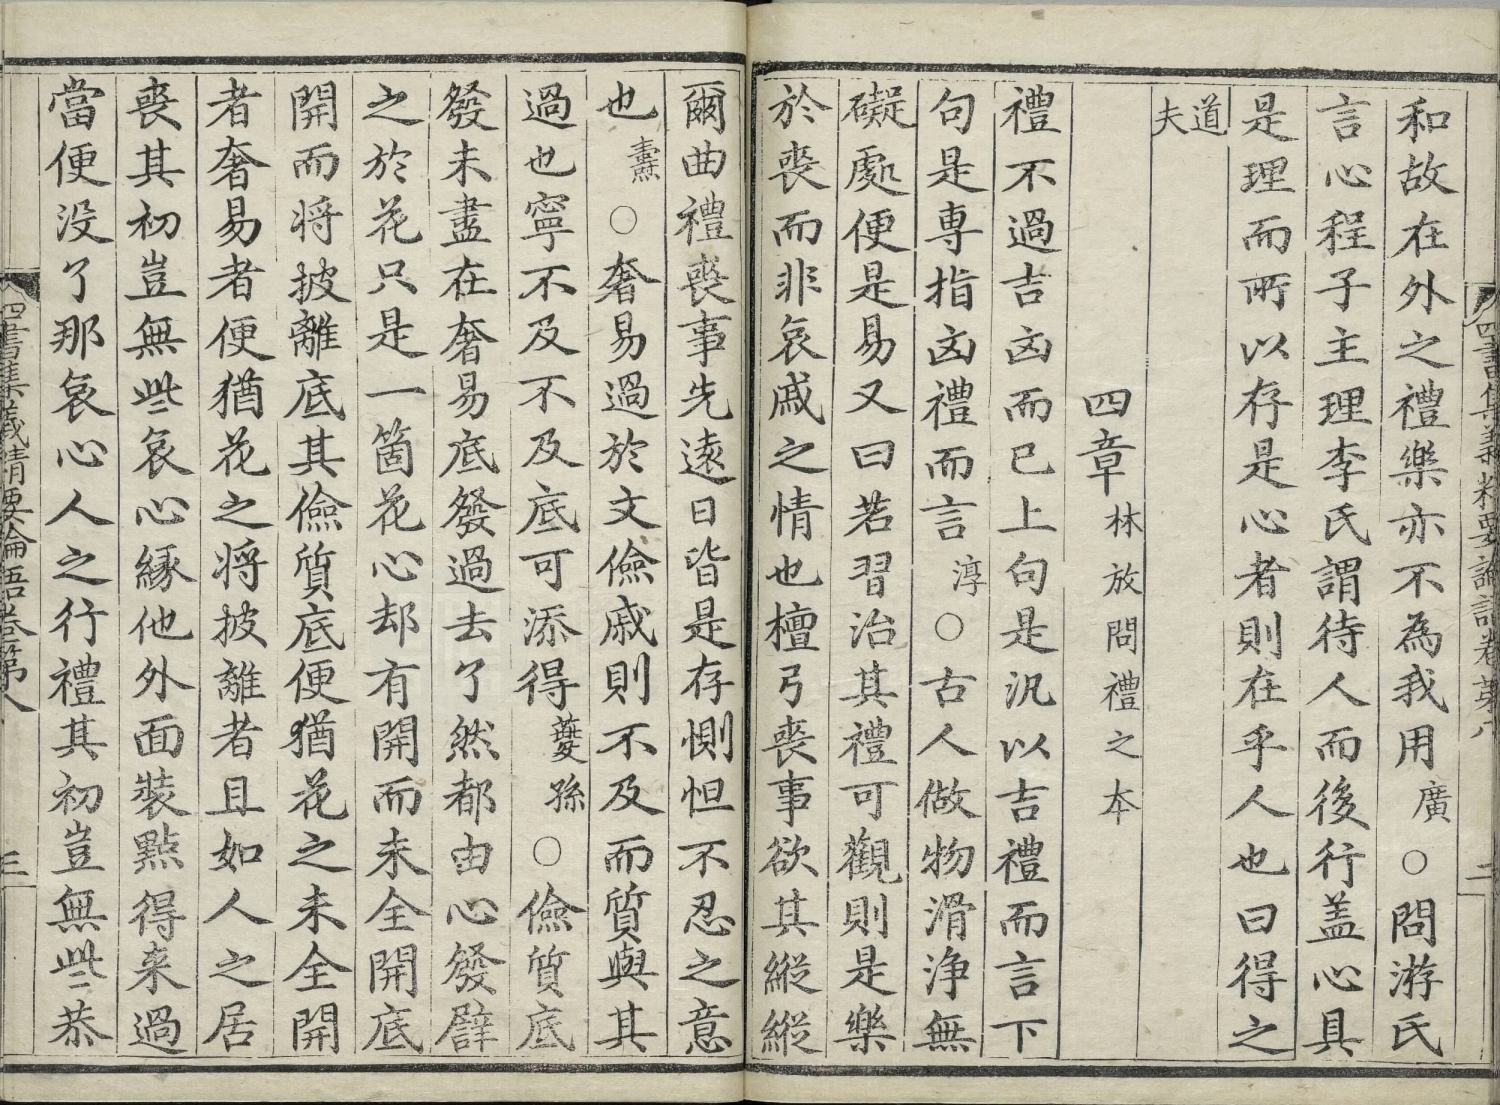 和故在外之禮樂亦不為我用廣○問游氏
言心程子主理李氏謂待人而後行盖心具
是理而所以存是心者則在乎人也曰得之
道夫
四章林放問禮之本
禮不過吉凶而已上句是汎以吉禮而言下
句是專指凶禮而言淳○古人做物滑淨無
礙處便是易又曰若習治其禮可觀則是樂
於喪而非哀戚之情也檀弓喪事欲其縱縱
爾曲禮喪事先遠日皆是存惻怛不忍之意
也燾○奢易過於文儉戚則不及而質與其
過也寧不及不及底可添得䕫孫○儉質底
發未盡在奢易底發過去了然都由心發譬
之於花只是一箇花心却有開而未全開底
開而將披離底其儉質底便猶花之未全開
者奢易者便猶花之將披離者且如人之居
喪其初豈無些哀心緣他外面裝點得來過
當便沒了那哀心人之行禮其初豈無些恭
四書集義精要論語卷第八
二
四書集義精要論語卷第八
三